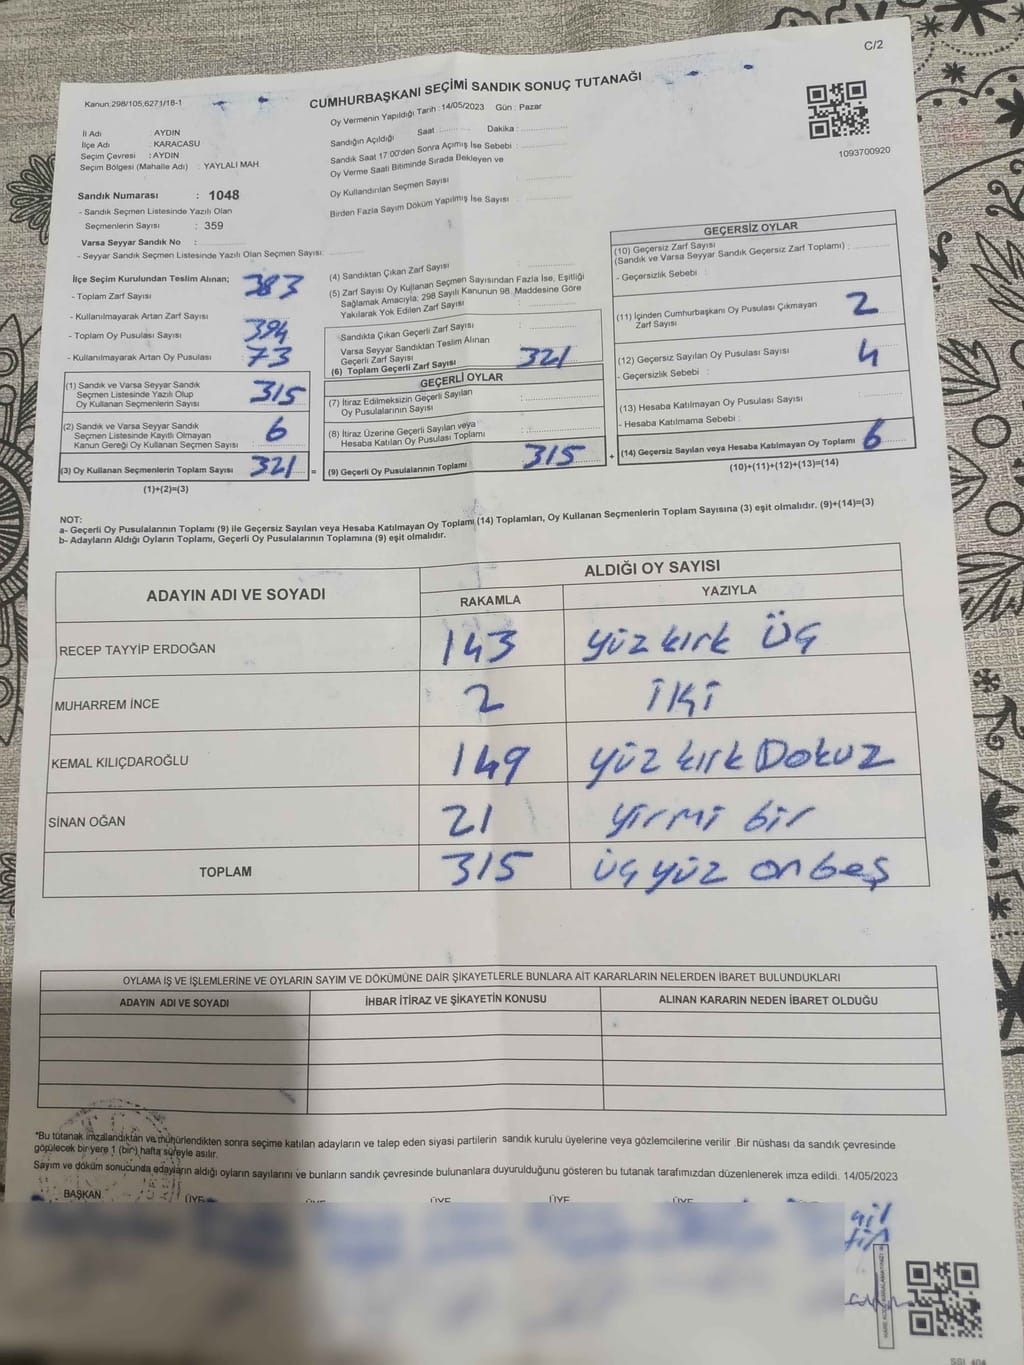 C/2
Kanun:298/105,6271/18-1
CUMHURBAŞKANI SEÇİMİ SANDIK SONUÇ TUTANAĞI
Oy Vermenin Yapıldığı Tarih : 14/05/2023 Gün : Pazar
1093700920
İl Adı : AYDIN
İlçe Adı : KARACASU
Seçim Çevresi : AYDIN
Seçim Bölgesi (Mahalle Adı) : YAYLALI MAH.
Sandık Numarası : 1048
- Sandık Seçmen Listesinde Yazılı Olan
Seçmenlerin Sayısı : 359
Varsa Seyyar Sandık No :
- Seyyar Sandık Seçmen Listesinde Yazılı Olan Seçmen Sayısı:
Sandığın Açıldığı Saat : Dakika :
Sandık Saat 17:00'den Sonra Açımış İse Sebebi :
Oy Verme Saati Bitiminde Sırada Bekleyen ve
Oy Kullandırılan Seçmen Sayısı :
Birden Fazla Sayım Döküm Yapılmış İse Sayısı :
İlçe Seçim Kurulundan Teslim Alınan;
- Toplam Zarf Sayısı 383
- Kullanılmayarak Artan Zarf Sayısı
- Toplam Oy Pusulası Sayısı 394
- Kullanılmayarak Artan Oy Pusulası 73
(1) Sandık ve Varsa Seyyar Sandık
Seçmen Listesinde Yazılı Olup
Oy Kullanan Seçmenlerin Sayısı 315
(2) Sandık ve Varsa Seyyar Sandık
Seçmen Listesinde Kayıtlı Olmayan
Kanun Gereği Oy Kullanan Seçmen Sayısı : 6
(3) Oy Kullanan Seçmenlerin Toplam Sayısı 321 =
(1)+(2)=(3)
(4) Sandıktan Çıkan Zarf Sayısı :
(5) Zarf Sayısı Oy Kullanan Seçmen Sayısından Fazla İse, Eşitliği
Sağlamak Amacıyla; 298 Sayılı Kanunun 98. Maddesine Göre
Yakılarak Yok Edilen Zarf Sayısı :
Sandıkta Çıkan Geçerli Zarf Sayısı :
Varsa Seyyar Sandıktan Teslim Alınan
Geçerli Zarf Sayısı :
(6) Toplam Geçerli Zarf Sayısı 321
GEÇERLİ OYLAR
(7) İtiraz Edilmeksizin Geçerli Sayılan
Oy Pusulalarının Sayısı :
(8) İtiraz Üzerine Geçerli Sayılan veya
Hesaba Katılan Oy Pusulası Toplamı :
(9) Geçerli Oy Pusulalarının Toplamı 315 +
GEÇERSİZ OYLAR
(10) Geçersiz Zarf Sayısı
(Sandık ve Varsa Seyyar Sandık Geçersiz Zarf Toplamı) :
- Geçersizlik Sebebi :
(11) İçinden Cumhurbaşkanı Oy Pusulası Çıkmayan
Zarf Sayısı 2
(12) Geçersiz Sayılan Oy Pusulası Sayısı 4
- Geçersizlik Sebebi :
(13) Hesaba Katılmayan Oy Pusulası Sayısı :
- Hesaba Katılmama Sebebi :
(14) Geçersiz Sayılan veya Hesaba Katılmayan Oy Toplamı 6
(10)+(11)+(12)+(13)=(14)
NOT:
a- Geçerli Oy Pusulalarının Toplamı (9) ile Geçersiz Sayılan veya Hesaba Katılmayan Oy Toplamı (14) Toplamları, Oy Kullanan Seçmenlerin Toplam Sayısına (3) eşit olmalıdır. (9)+(14)=(3)
b- Adayların Aldığı Oyların Toplamı, Geçerli Oy Pusulalarının Toplamına (9) eşit olmalıdır.
ADAYIN ADI VE SOYADI ALDIĞI OY SAYISI
RAKAMLA YAZIYLA
RECEP TAYYİP ERDOĞAN 143 yüz kırk üç
MUHARREM İNCE 2 iki
KEMAL KILIÇDAROĞLU 149 yüz kırk Dokuz
SİNAN OĞAN 21 yirmi bir
TOPLAM 315 üç yüz on beş
OYLAMA İŞ VE İŞLEMLERİNE VE OYLARIN SAYIM VE DÖKÜMÜNE DAİR ŞİKAYETLERLE BUNLARA AİT KARARLARIN NELERDEN İBARET BULUNDUKLARI
ADAYIN ADI VE SOYADI İHBAR İTİRAZ VE ŞİKAYETİN KONUSU ALINAN KARARIN NEDEN İBARET OLDUĞU
*Bu tutanak imzalandıktan ve mühürlendikten sonra seçime katılan adayların ve talep eden siyasi partilerin sandık kurulu üyelerine veya gözlemcilerine verilir .Bir nüshası da sandık çevresinde
görülecek bir yere 1 (bir) hafta süreyle asılır.
Sayım ve döküm sonucunda adayların aldığı oyların sayılarını ve bunların sandık çevresinde bulunanlara duyurulduğunu gösteren bu tutanak tarafımızdan düzenlenerek imza edildi. 14/05/2023
BAŞKAN ÜYE ÜYE ÜYE ÜYE ÜYE